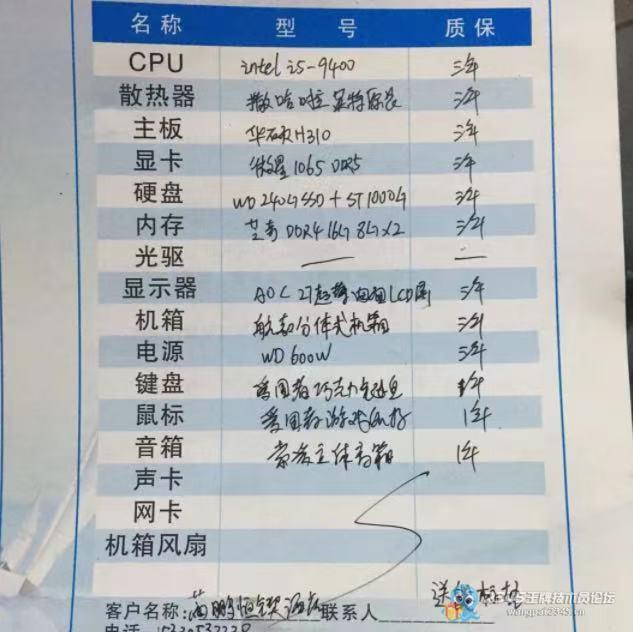 名称 型号 质保
CPU intel i5-9400 三年
散热器 散哈啦 英特原装 三年
主板 华硕H310 三年
显卡 微星1065 DDR5 三年
硬盘 WD 240G SSD + ST1000G 三年
内存 芝奇 DDR4 16G 8G×2 三年
光驱 — —
显示器 AOC 27 LCD屏 三年
机箱 航嘉分体式机箱 三年
电源 WD 600W 三年
键盘 爱国者巧克力 1年
鼠标 爱国者游戏 1年
音箱 立体音箱 1年
声卡
网卡
机箱风扇
送
客户名称: 鹏恒 联系人
电话
王牌技术员论坛
wangpai2345.cn